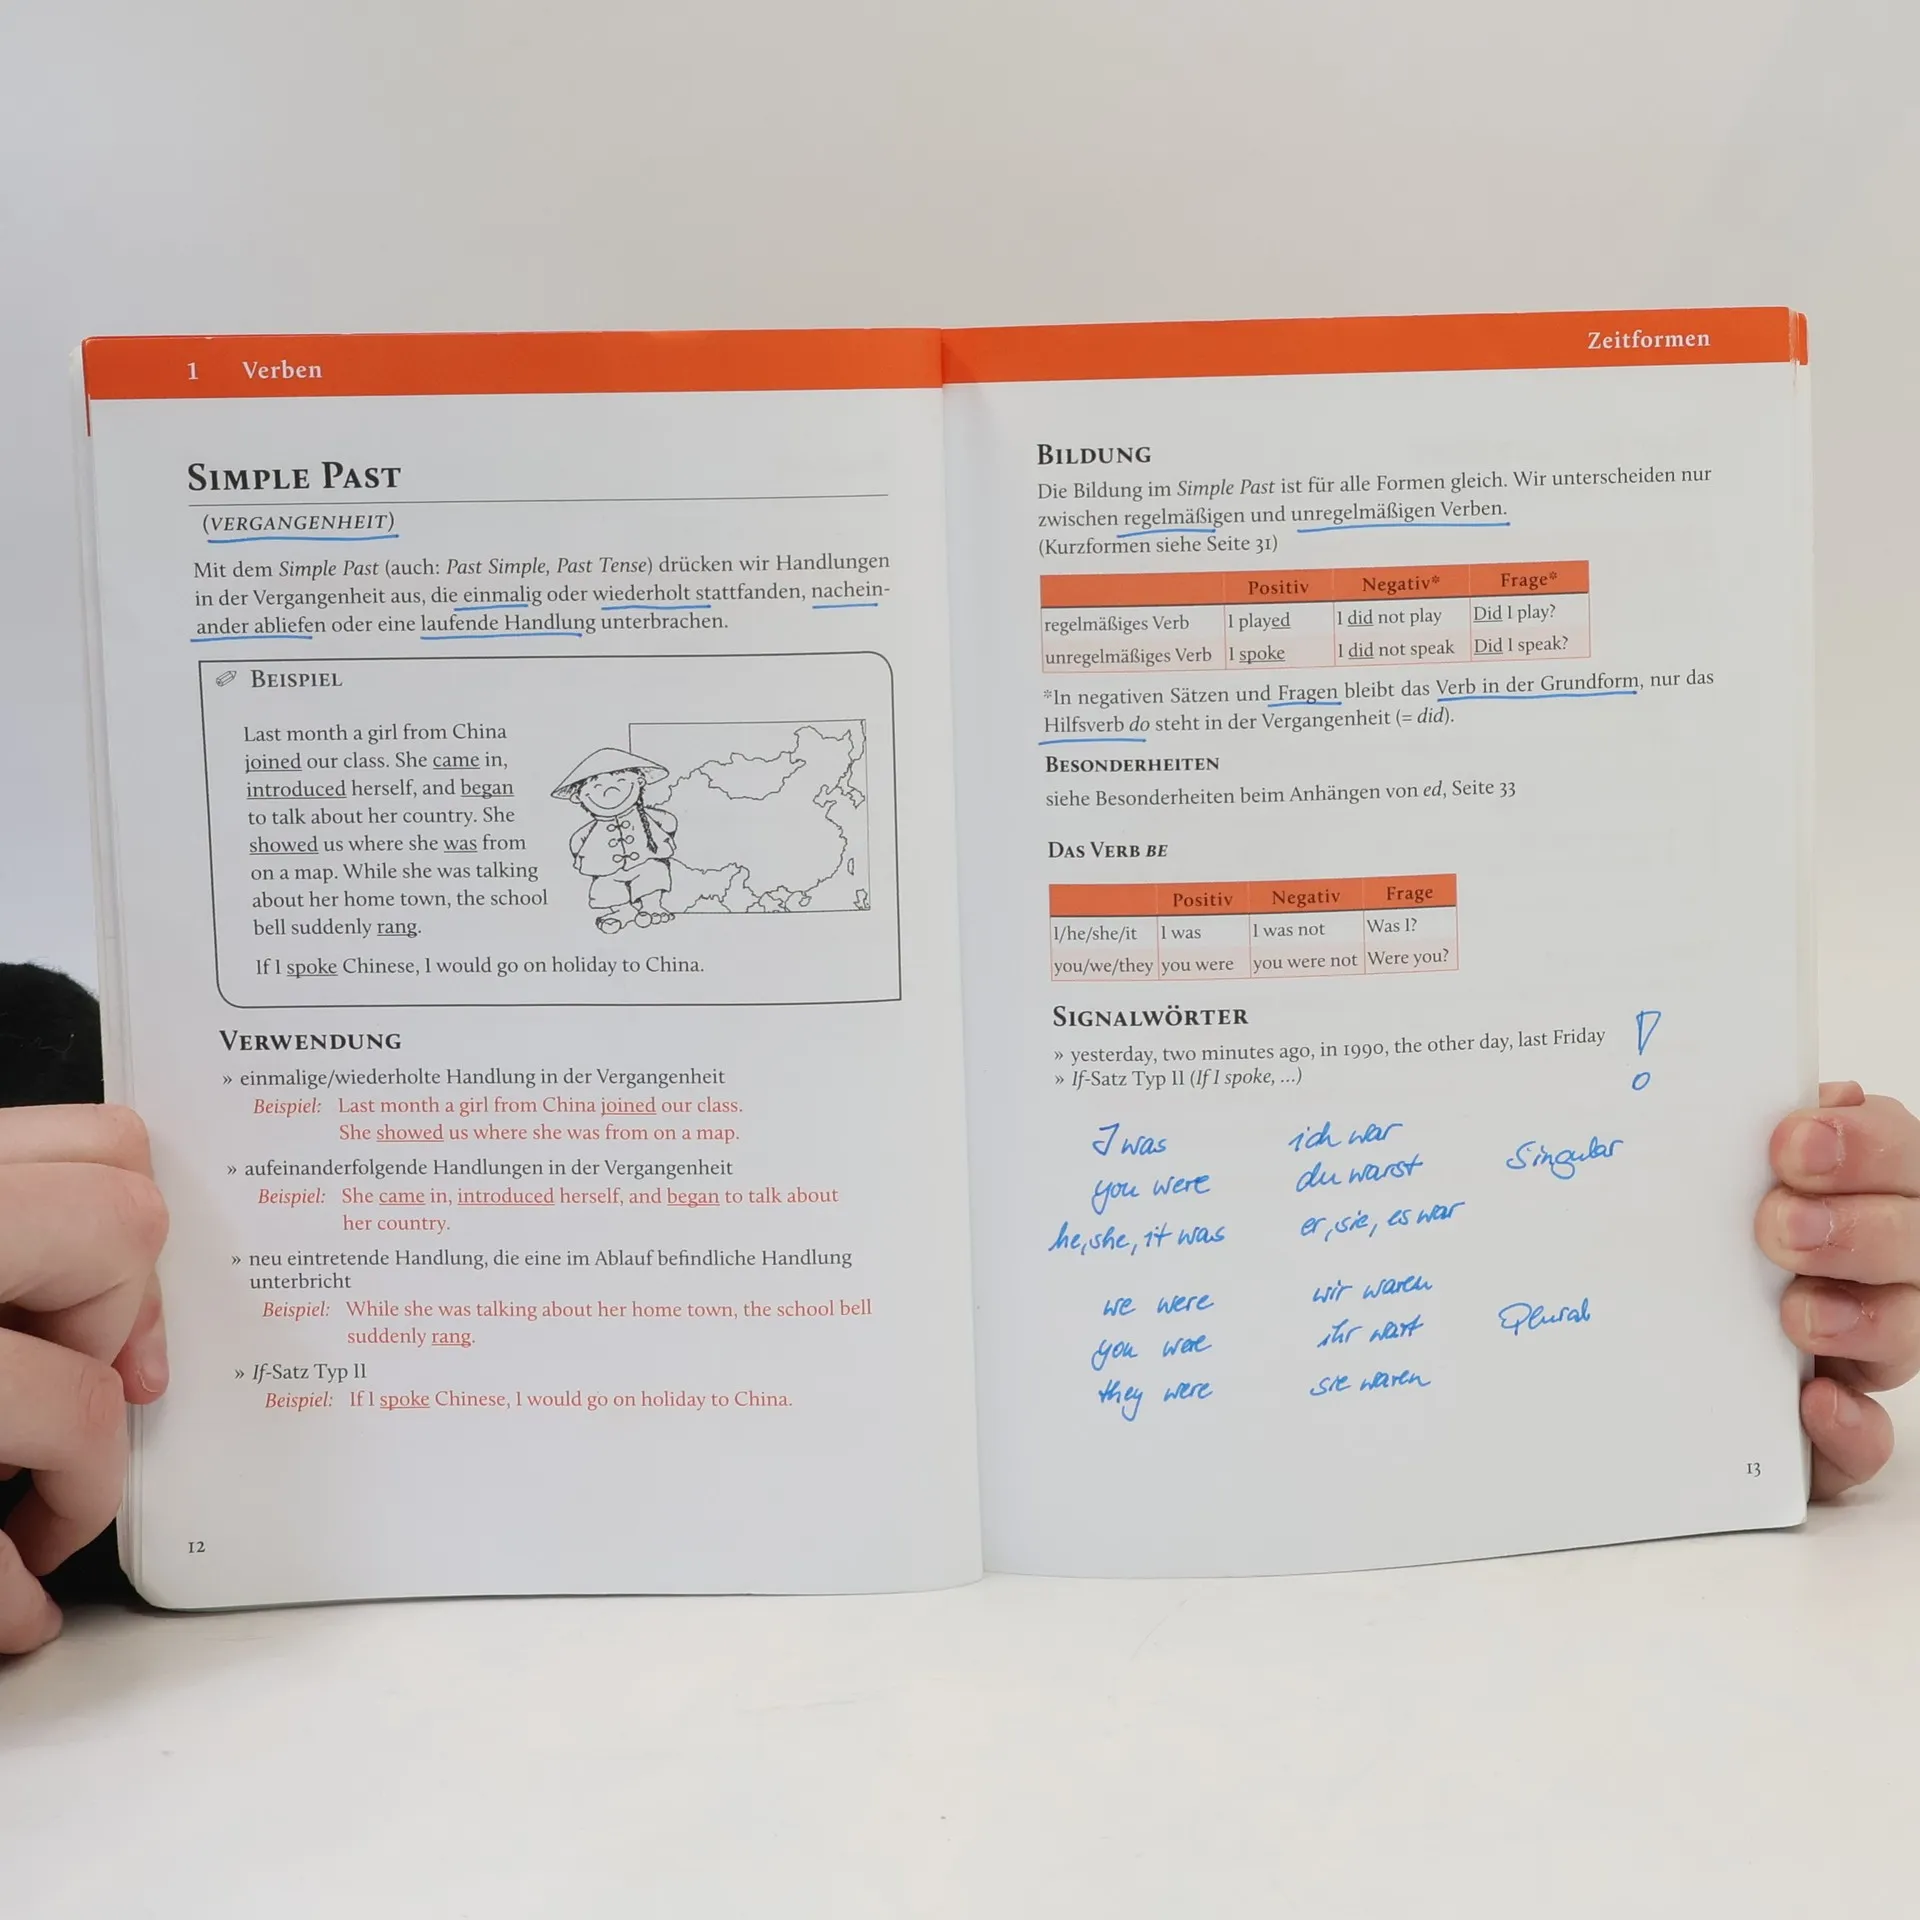 1 Verben
SIMPLE PAST
(VERGANGENHEIT)
Mit dem Simple Past (auch: Past Simple, Past Tense) drücken wir Handlungen
in der Vergangenheit aus, die einmalig oder wiederholt stattfanden, nachein-
ander abliefen oder eine laufende Handlung unterbrachen.
BEISPIEL
Last month a girl from China
joined our class. She came in,
introduced herself, and began
to talk about her country. She
showed us where she was from
on a map. While she was talking
about her home town, the school
bell suddenly rang.
If I spoke Chinese, I would go on holiday to China.
VERWENDUNG
» einmalige/wiederholte Handlung in der Vergangenheit
Beispiel: Last month a girl from China joined our class.
She showed us where she was from on a map.
» aufeinanderfolgende Handlungen in der Vergangenheit
Beispiel: She came in, introduced herself, and began to talk about
her country.
» neu eintretende Handlung, die eine im Ablauf befindliche Handlung
unterbricht
Beispiel: While she was talking about her home town, the school bell
suddenly rang.
» If-Satz Typ II
Beispiel: If I spoke Chinese, I would go on holiday to China.
12
Zeitformen
BILDUNG
Die Bildung im Simple Past ist für alle Formen gleich. Wir unterscheiden nur
zwischen regelmäßigen und unregelmäßigen Verben.
(Kurzformen siehe Seite 31)
Positiv Negativ* Frage*
regelmäßiges Verb I played I did not play Did I play?
unregelmäßiges Verb I spoke I did not speak Did I speak?
*In negativen Sätzen und Fragen bleibt das Verb in der Grundform, nur das
Hilfsverb do steht in der Vergangenheit (= did).
BESONDERHEITEN
siehe Besonderheiten beim Anhängen von ed, Seite 33
DAS VERB BE
Positiv Negativ Frage
I/he/she/it I was I was not Was I?
you/we/they you were you were not Were you?
SIGNALWÖRTER
» yesterday, two minutes ago, in 1990, the other day, last Friday !
» If-Satz Typ II (If I spoke, ...)
I was ich war Singular
you were du warst
he, she, it was er, sie, es war
we were wir waren
you were ihr wart Plural
they were sie waren
13